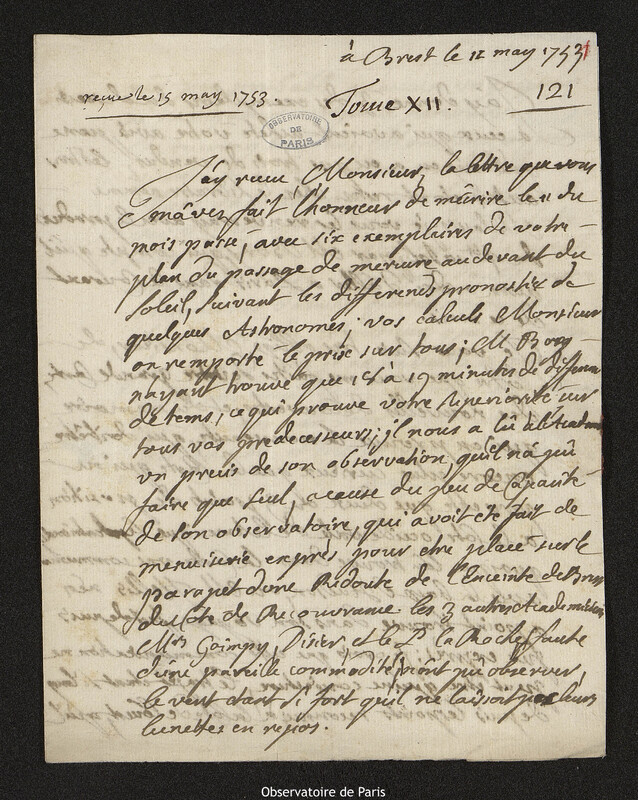 à Brest le 11 may 1753
reçue le 15 may 1753. Tome XII. 121
OBSERVATOIRE DE PARIS
J'ay reçu, Monsieur, la lettre que vous
m'avés fait l'honneur de m'ecrire le 11 du
mois passé, avec six exemplaires de votre
plan du passage de mercure au devant du
Soleil, suivant les differens pronostics de
quelques Astronomes; vos calculs Monsieur
on remporté le prix sur tous; M. Bory
n'ayant trouvé que 18 à 19 minutes de
de tems, ce qui prouve votre superiorité sur
tous vos predecesseurs; il nous a lû à
un precis de son observation, qu'il n'a pû
faire que seul, acause du peu de Capacité
de son observatoire, qui avoit eté fait de
menuiserie exprés pour etre placé sur le
parapet d'une Redoute de l'Enceinte de Brest
du coté de Recouvrance les 3 autres Academiciens
Mrs Goimpy, Disier, et le P. la Roche, faute
d'une pareille commodité n'ont pû observer,
le vent etant si fort qu'il ne laissoit pas leurs
lunettes en repos.
Observatoire de Paris